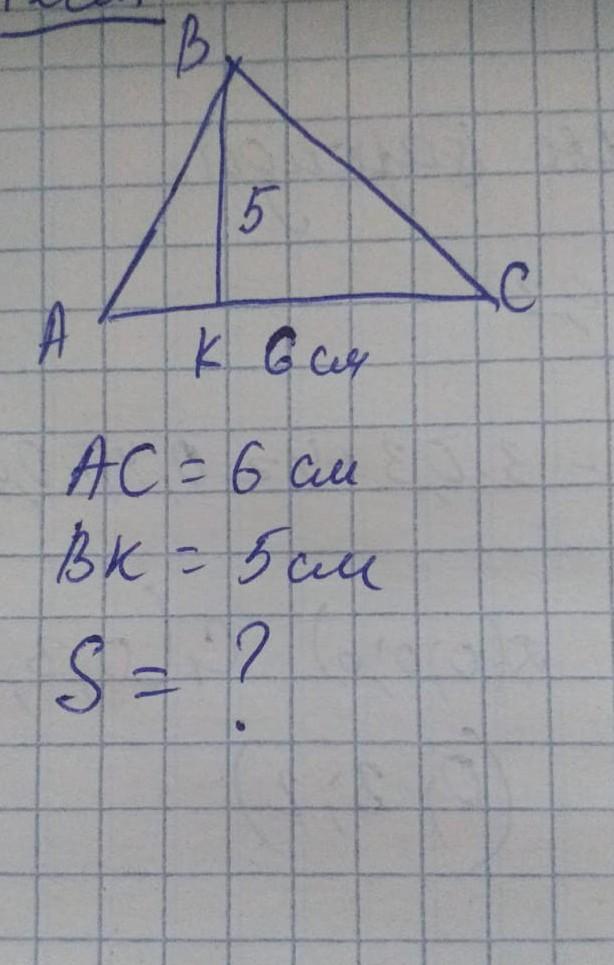 B
5
A
C
K 6 см
AC = 6 см
BK = 5 см
S = ?